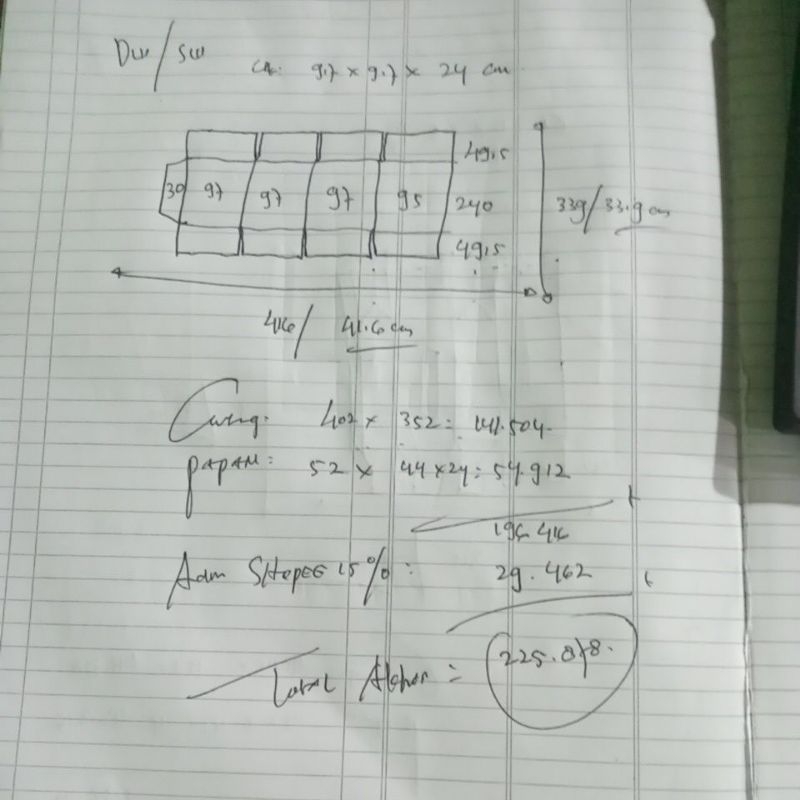 DW/SW
uk: 9.7 x 9.7 x 24 cm
49.5
30 97 97 97 95 240
339/33.9 cm
49.5
416/ 41.6 cm
402 x 352 = 141.504.
PAPAN: 52 x 44 x 24 = 54.912
+
196.416
Adm SHOPEE 15%: 29.462
Total = 225.878.